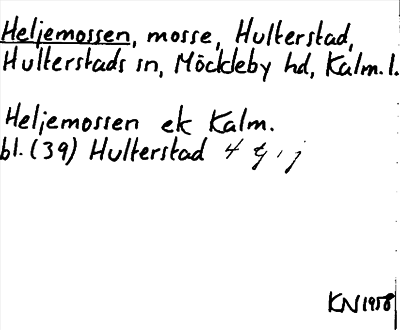 Heljemossen, mosse, Hulterstad,
Hulterstads sn, Möckleby hd, Kalm. l.
Heljemossen ek Kalm.
bl. (39) Hulterstad 4 g i j
KN 1958